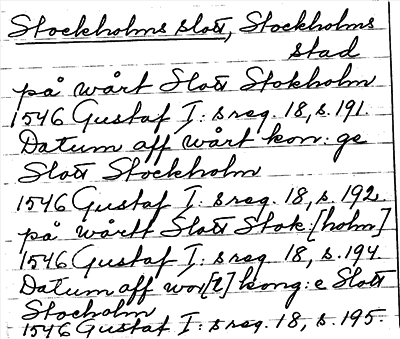 Stockholms slott, Stockholms
stad
på wårt Slott Stokholm
1546 Gustaf I: s reg. 18, s. 191.
Datum aff wårt kon: ge
Slott Stockholm
1546 Gustaf I: s reg. 18, s. 192.
på wårtt Slott Stok:[holm]
1546 Gustaf I: s reg. 18, s. 194.
Datum aff wor[t] kong: e Slott
Stocholm
1546 Gustaf I: s reg. 18, s. 195.